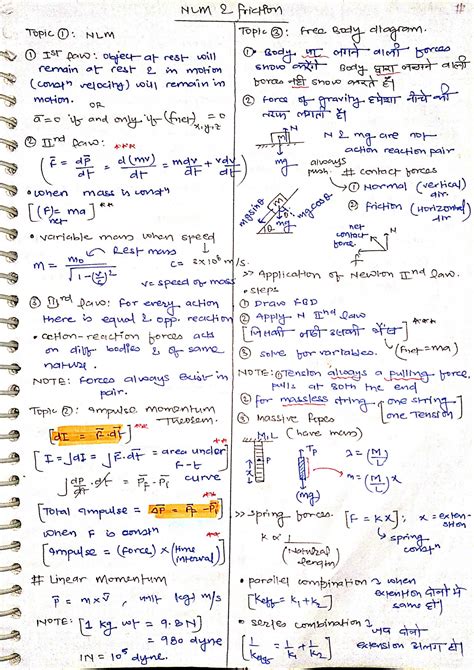 NLM & friction
Topic ①: NLM
① Ist law: object at rest will
remain at rest & in motion
(const^n velocity) will remain in
motion.
OR
a=0 if and only if (fnet)x,y,z = 0
② IInd law: ***
(F̄ = dp̄/dt = d(mv)/dt = mdv/dt + vdv/dt)
• when mass is const^n
[(F)net = ma]**
• variable mass when speed
Rest mass
m = m₀/√(1-(v/c)²)
c = 3x10⁸ m/s
v = speed of mass
③ IIIrd law: for every action
there is equal & opp. reaction
• action-reaction forces acts
on diff bodies & of same
nature.
NOTE: Forces always exist in
pair.
Topic ②: Impulse momentum
Theorem.
[dI = F̄.dt]**
[I = ∫dI = ∫F̄.dt = area under
F-t
curve
∫dp̄/dt . dt = P̄f - P̄i
[Total Impulse = ΔP̄ = P̄f - P̄i]**
when F is const^n
[Impulse = (force) x (time interval)]
# Linear Momentum
p̄ = m x v̄, unit kgf m/s
NOTE: [1 kg wt = 9.8 N]
= 980 dyne
1N = 10⁵ dyne
Topic ③: Free Body diagram.
① Body पर लगने वाली forces
show करेंगे Body द्वारा लगाने वाली
forces नहीं show करते हैं।
② Force of gravity हमेशा नीचे की
लगती है।
N
mg
N & mg are not
action reaction pair
always
push.
# contact forces
① Normal (vertical)
dir
② friction (horizontal)
dir
N
mgsinθ
mgcosθ
θ
mg
net
contact
force.
N
f
>> Application of Newton IInd law.
• steps
① Draw FBD
② Apply N IInd law
[जिसकी लाठी उसकी भैंस]***
(Fnet = ma)
③ solve for variables.
NOTE: ① Tension always a pulling force,
pulls at both the end
② for massless string (one string
one Tension)
③ Massive Ropes
(have mass)
M,L
P
x
Tp
(mg)
λ = (M/L)
= (M/L)x
>> spring forces. [F = Kx]; x = exten-
sion
spring
const^n
K ∝ 1/(Natural length)
• parallel combination & when
[Keff = k₁ + k₂]
extention दोनों में
same हो।
• series combination &
जब दोनों
extension अलग हो
[1/Keff = 1/k₁ + 1/k₂]